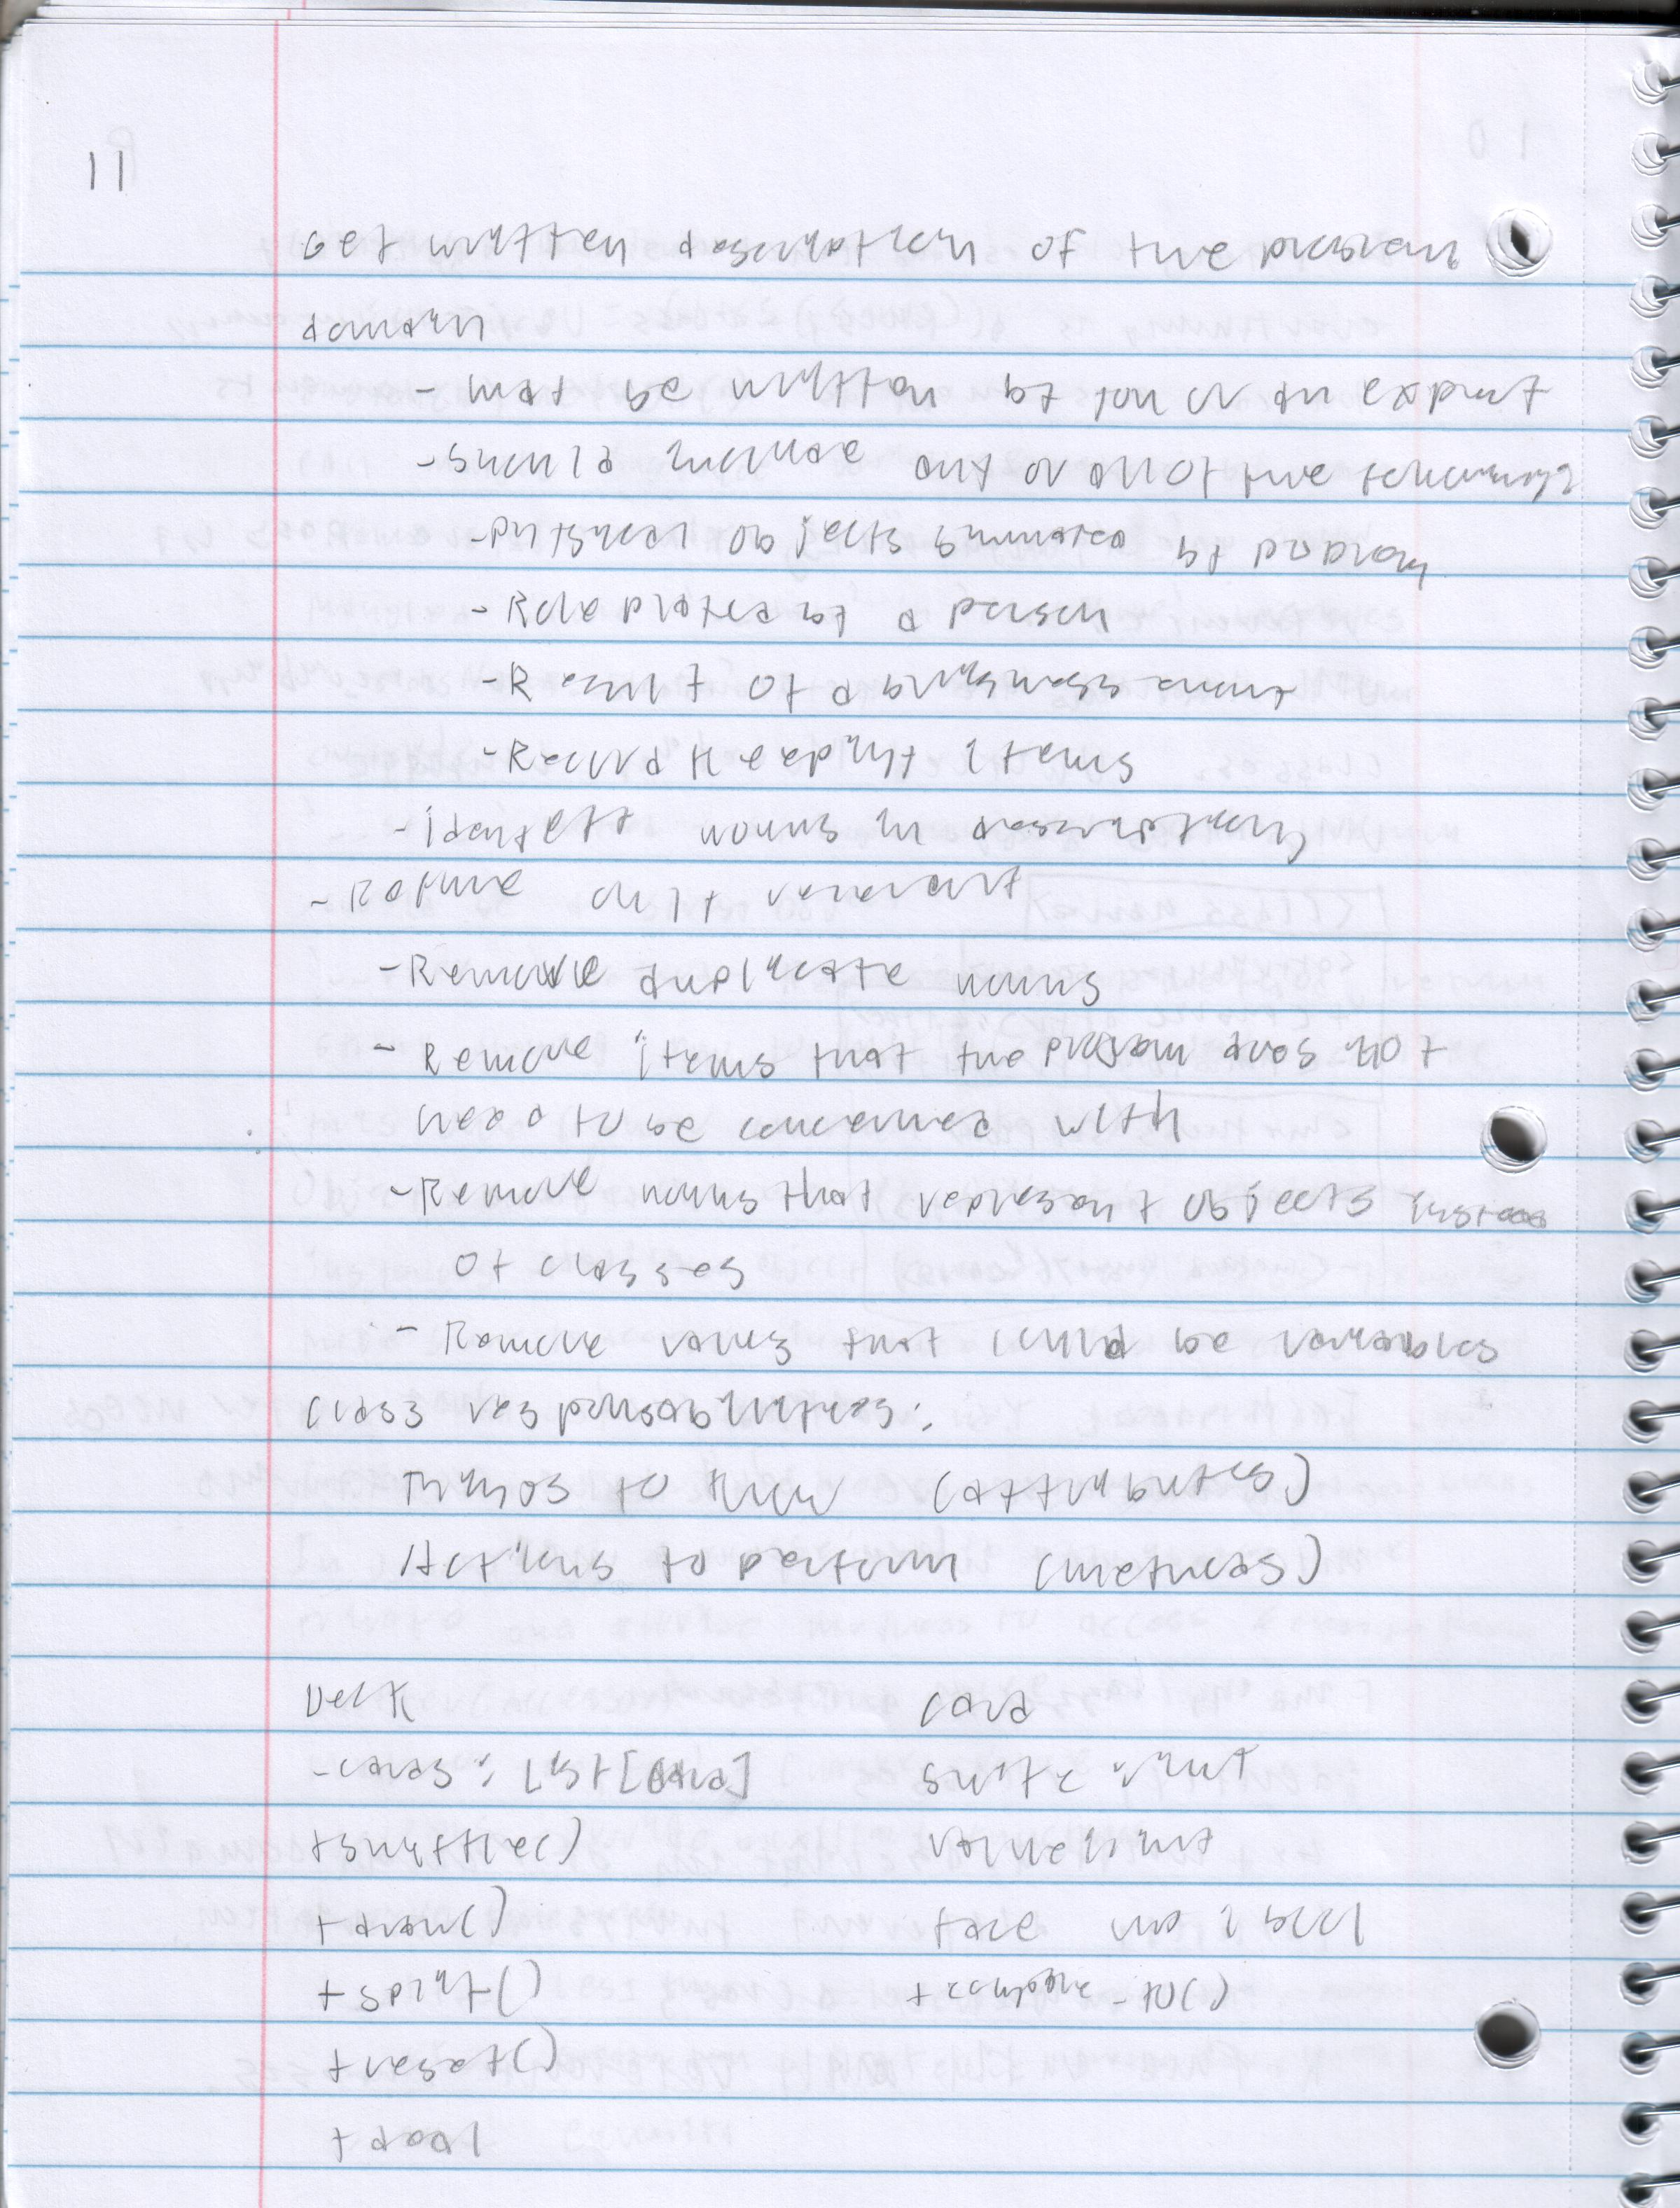 11
Get written description of the problem
domain
- may be written by you or an expert
- should include any or all of the following
- physical objects simulated by program
- Role played by a person
- Result of a business event
- Record keeping items
- identify nouns in description
- Refine only relevant
- Remove duplicate nouns
- Remove items that the program does not
need to be concerned with
- Remove nouns that represent objects instead
of classes
- Remove values that could be variables
class responsibilities:
Things to know (attributes)
Actions to perform (methods)
Deck card
- cards: List[Card] suit: int
+ shuffle() value: int
+ draw() face up: bool
+ split()
+ reset()
+ deal